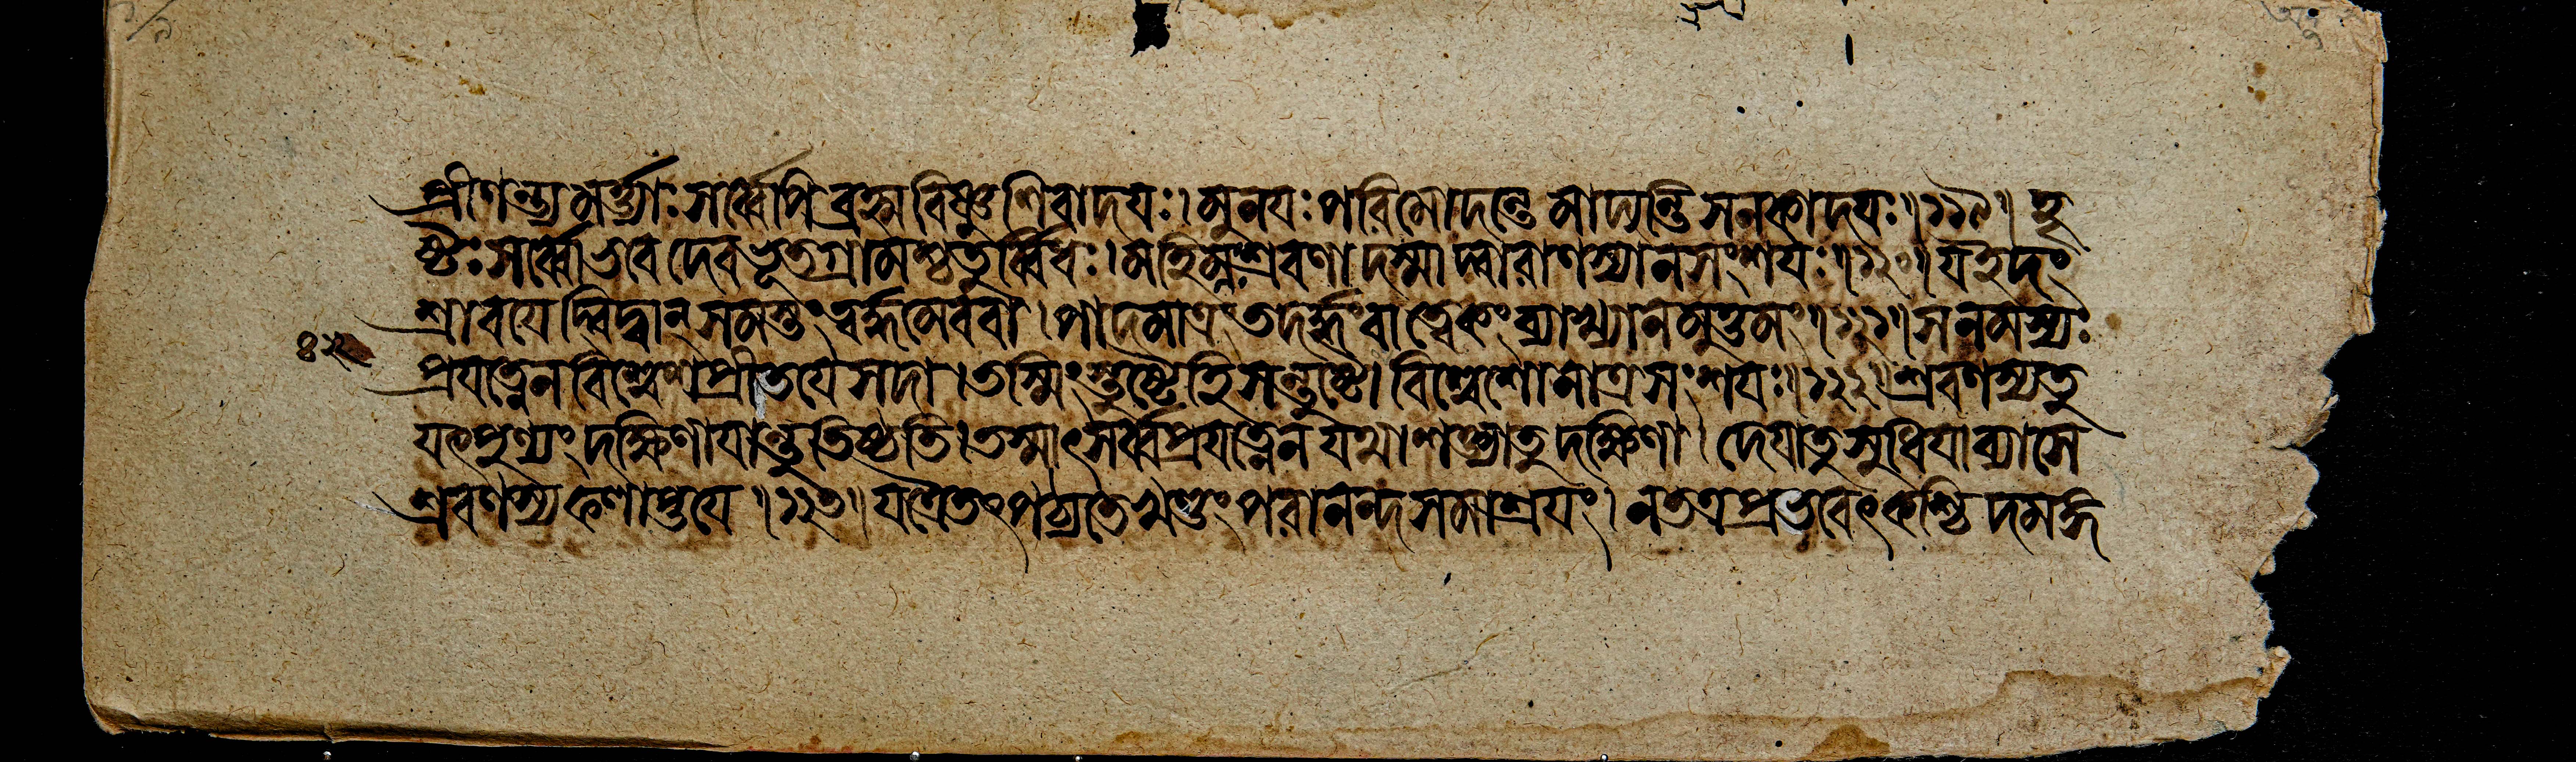 প্রীণন্ত্যমর্ত্ত্যাঃ সর্ব্বেপি ব্রহ্মবিষ্ণুশিবাদযঃ। মুনযঃ পরিমোদন্তে মাদ্যন্তি সনকাদযঃ॥১১৯॥ হৃ
ষ্টঃ সর্ব্বো ভবেদেব ভূতগ্রামশ্চতুর্ব্বিধঃ। মহিম্নঃ শ্রবণাদস্মাদ্বারাণস্যা ন সংশযঃ॥১২০॥ য ইদং
শ্রাবযেদ্বিদ্বান্ সমস্তং ত্বর্দ্ধমেব বা। পাদমাত্রং তদর্দ্ধং বা ত্বেকং ব্যাখ্যানমুত্তমং॥১২১॥ স নমস্যঃ
প্রযত্নেন বিশ্বেশপ্রীতযে সদা। তস্মিংস্তুষ্টে হি সন্তুষ্টো বিশ্বেশো নাত্র সংশযঃ॥১২২॥ শ্রবণস্য তু
যৎপুণ্যং দক্ষিণাযান্তু তিষ্ঠতি। তস্মাৎ সর্ব্বপ্রযত্নেন যথাশক্ত্যা তু দক্ষিণা। দেযা তু সুধিযা ব্যাসে
শ্রবণস্য ফলাপ্তযে॥১২৩॥ যত্রৈতৎ পঠ্যতে খণ্ডং পরানন্দসমাশ্রযং। ন তত্র প্রভবেৎ কশ্চিদমঙ্গ